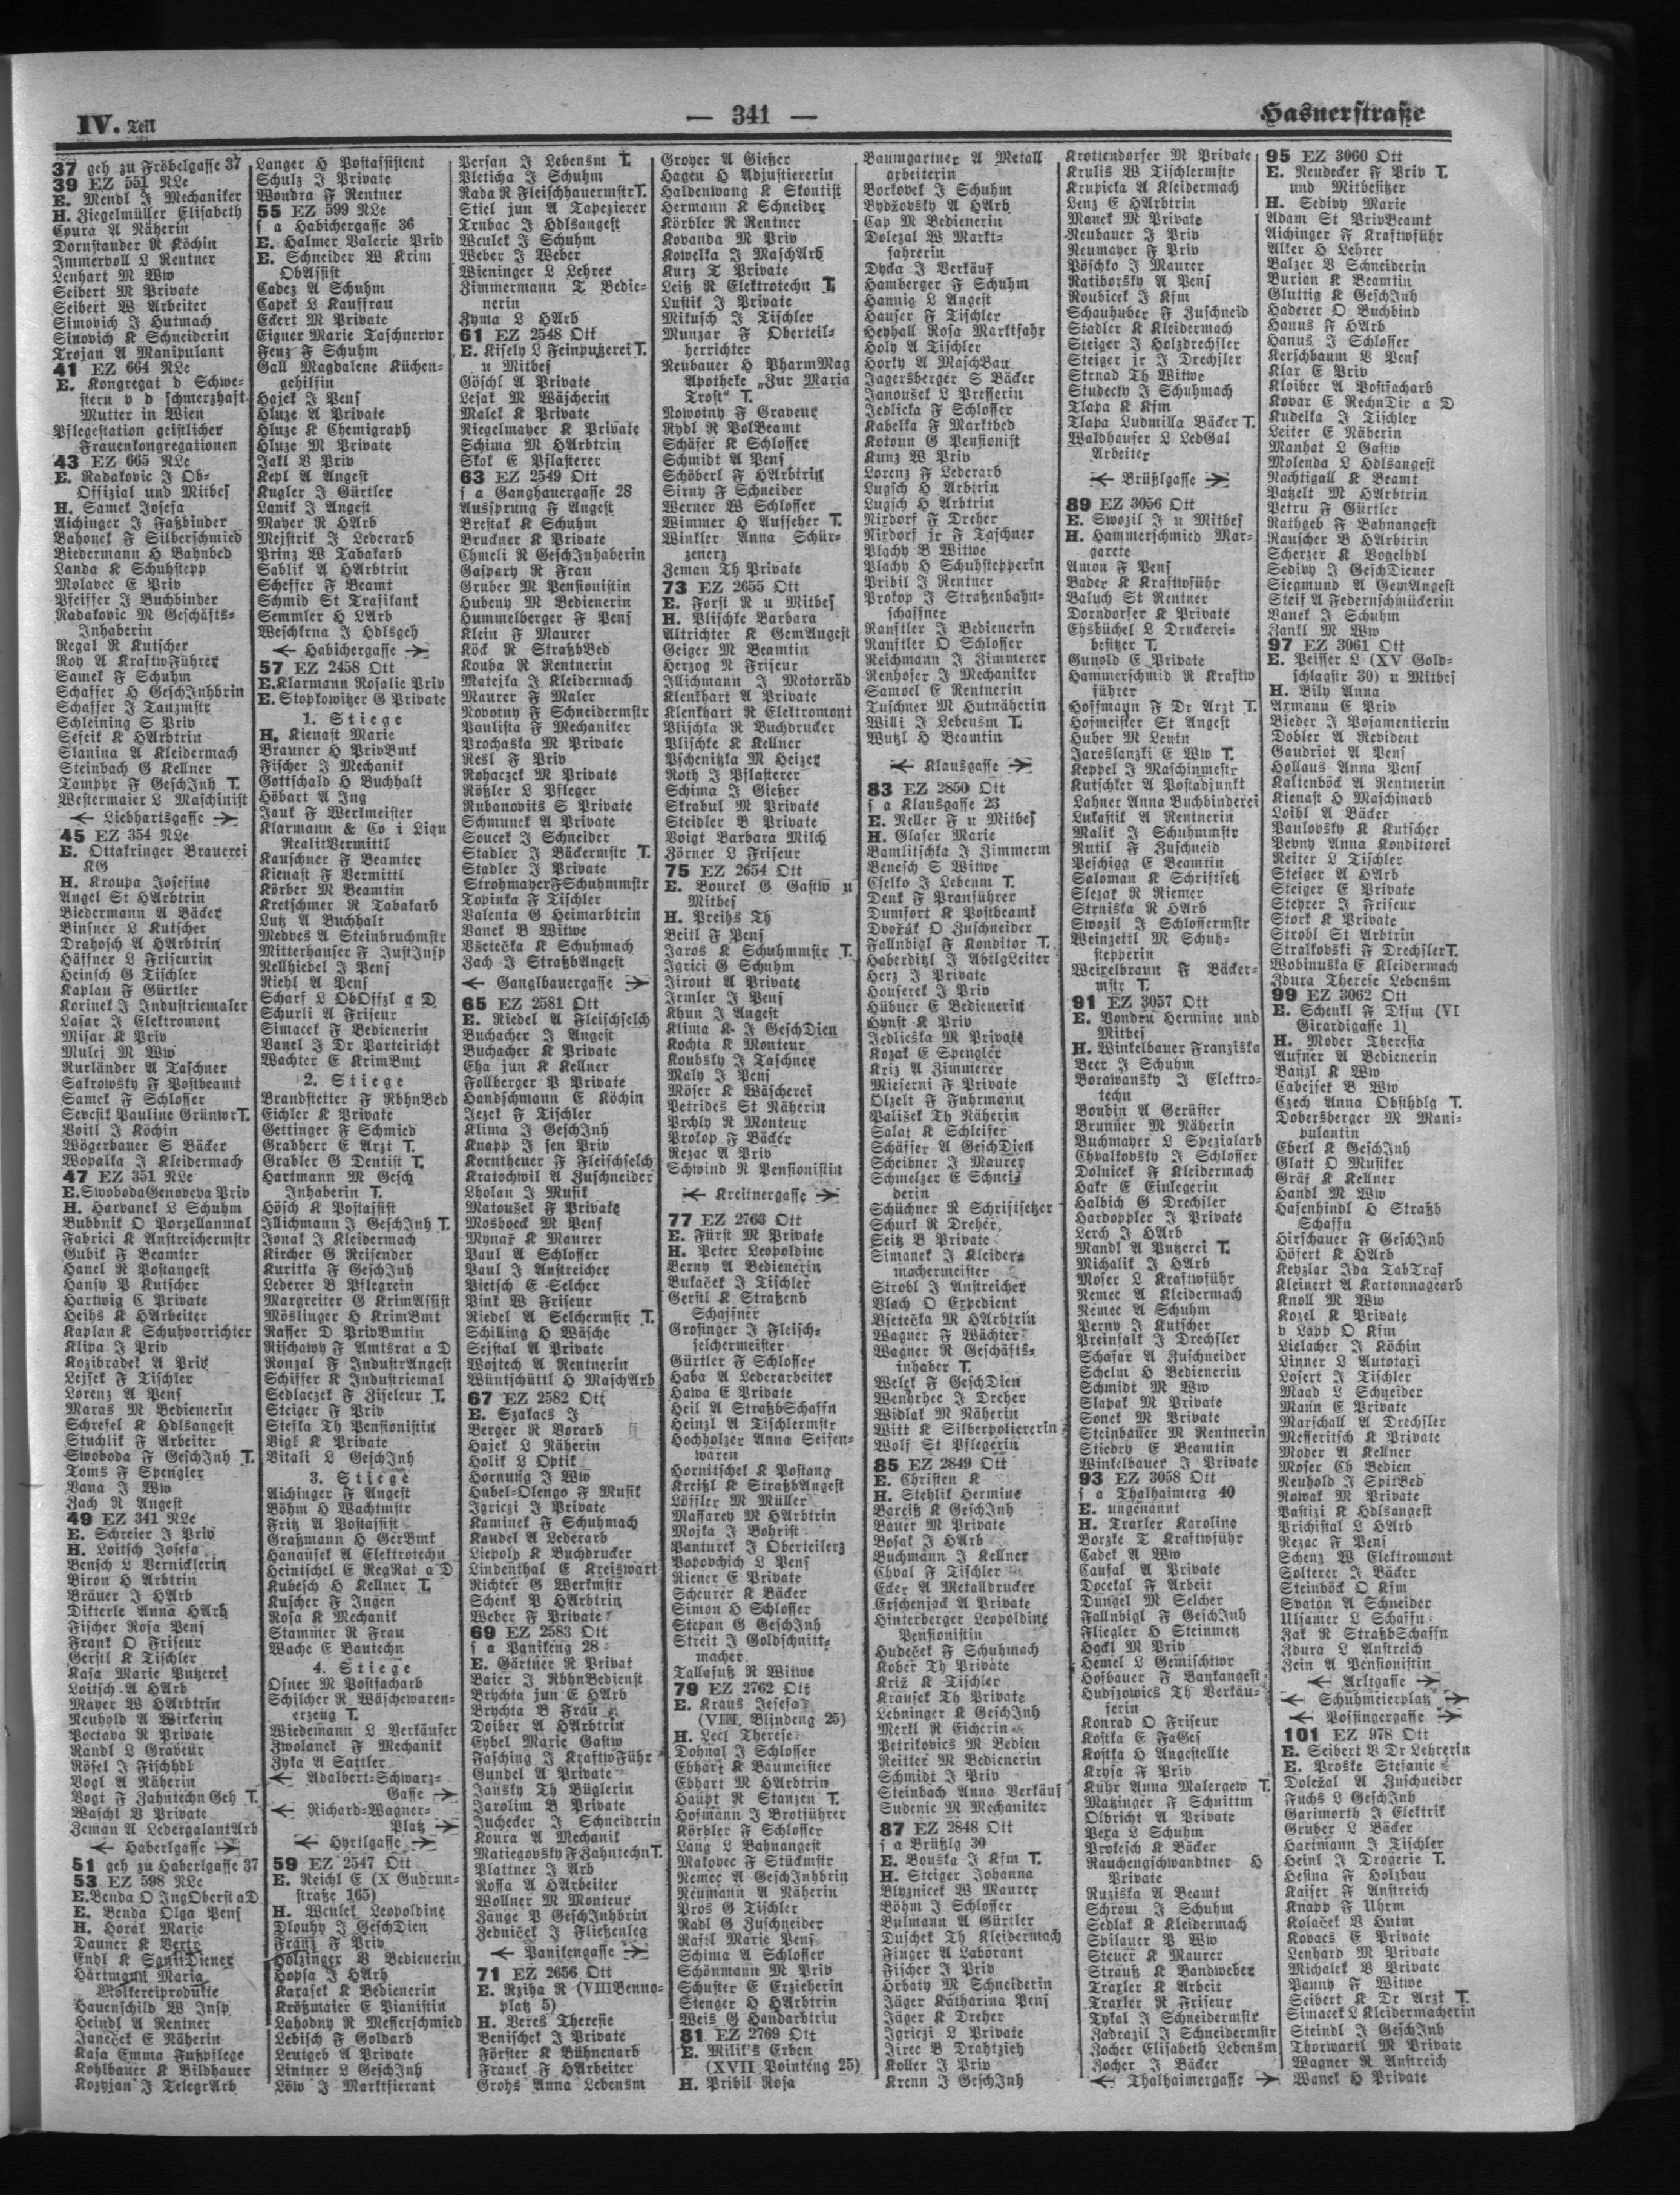 IV. Teil
— 341 —
Hasnerstraße
37 geh zu Fröbelgasse 37
39 EZ 551 NLe
E. Mendl J Mechaniker
H. Ziegelmüller Elisabeth
Cpura A Näherin
Dornstauder R Köchin
Immervoll L Rentner
Lenhart M Ww
Seibert M Private
Seibert W Arbeiter
Simovich J Hutmach
Sinovich K Schneiderin
Trojan A Manipulant
41 EZ 664 NLe
E. Kongregat d Schwe-
stern v d schmerzhaft
Mutter in Wien
Pflegestation geistlicher
Frauenkongregationen
43 EZ 665 NLe
E. Radakovic J Ob-
Offizial und Mitbes
H. Samek Josefa
Aichinger J Faßbinder
Bahonek F Silberschmied
Biedermann H Bahnbed
Landa K Schuhstepp
Molavec E Priv
Pfeiffer J Buchbinder
Radakovic M Geschäfts-
Inhaberin
Regal R Kutscher
Roy A KraftwFührer
Samek F Schuhm
Schaffer H GeschInhbrin
Schaffer J Tanzmstr
Schleining S Priv
Sefeik K HArbtrin
Slanina A Kleidermach
Steinbach G Kellner
Tamphr F GeschInh T.
Westermaier L Maschinist
← Liebhartsgasse →
45 EZ 354 NLe
E. Ottakringer Brauerei
KG
H. Kroupa Josefine
Angel St HArbtrin
Biedermann A Bäcker
Binsner L Kutscher
Drahosch A HArbtrin
Häffner L Friseurin
Heinsch G Tischler
Kaplan F Gürtler
Korinek J Industriemaler
Lasar J Elektromont
Misar K Priv
Mulej M Ww
Nurländer A Taschner
Sakrowsky F Postbeamt
Samek F Schlosser
Sevcsik Pauline GrünwrT.
Voitl J Köchin
Wögerbauer S Bäcker
Wopalka J Kleidermach
47 EZ 351 NLe
E.SwobodaGenoveva Priv
H. Harvanek L Schuhm
Bubbnik O Porzellanmal
Fabrici K Anstreichermstr
Gubik F Beamter
Hanel R Postangest
Hansy P Kutscher
Hartwig C Private
Heihs K HArbeiter
Kaplan K Schuhvorrichter
Klipa J Priv
Kozibradek A Priv
Lejsek F Tischler
Lorenz A Pens
Maras M Bedienerin
Schrefel K Hdlsangest
Stuchlik F Arbeiter
Swoboda F GeschInh T.
Toms F Spengler
Vana J Ww
Zach R Angest
49 EZ 341 NLe
E. Schreier J Priv
H. Loitsch Josefa
Bensch L Vernicklerin
Biron H Arbtrin
Bräuer J HArb
Ditterle Anna HArb
Fischer Rosa Pens
Frank O Friseur
Gerstl K Tischler
Kasa Marie Putzerei
Loitsch A HArb
Mayer W HArbtrin
Neuhold A Wirkerin
Poctava R Private
Randl L Graveur
Rösel J Fischhdl
Vogl A Näherin
Vogt F Zahntechn Geh T.
Waschl V Private
Zeman A LedergalantArb
← Haberlgasse →
51 geh zu Haberlgasse 37
53 EZ 598 NLe
E.Benda O IngOberst aD
E. Benda Olga Pens
H. Horak Marie
Dauner K Vertr
Endl K SanitDiener
Hartmann Maria
Molkereiprodukte
Hauenschild W Insp
Heindl A Rentner
Janeček E Näherin
Kasa Emma Fußpflege
Kohlbauer K Bildhauer
Kozyjan J TelegrArb
Langer H Postassistent
Schulz J Private
Wondra F Rentner
55 EZ 599 NLe
s a Habichergasse 36
E. Halmer Valerie Priv
E. Schneider W Krim
ObAssist
Cadez A Schuhm
Capek L Kauffrau
Eckert M Private
Eigner Marie Taschnerwr
Fenz F Schuhm
Gall Magdalene Küchen-
gehilfin
Hajek J Pens
Hluze A Private
Hluze K Chemigraph
Hluze M Private
Jakl V Priv
Kepl A Angest
Kugler J Gürtler
Lanik J Angest
Mayer R HArb
Mejstrik J Lederarb
Prinz W Tabakarb
Sablik A HArbtrin
Scheffer F Beamt
Schmid St Trafikant
Semmler H LArb
Weschkrna J Hdlsgeh
← Habichergasse →
57 EZ 2458 Ott
E.Klarmann Rosalie Priv
E. Stopkowitzer G Private
1. Stiege
H. Kienast Marie
Brauner H PrivBmt
Fischer J Mechanik
Gottschald H Buchhalt
Höbart A Ing
Jauk F Werkmeister
Klarmann & Co i Liqu
RealitVermittl
Kauschner F Beamter
Kienast F Vermittl
Körber M Beamtin
Kretschmer R Tabakarb
Lutz A Buchhalt
Medves A Steinbruchmstr
Mitterhauser F JustInsp
Nellhiebel J Pens
Riehl A Pens
Scharf L ObOffzl a D
Schurli A Friseur
Simacek F Bedienerin
Vanel J Dr Parteiricht
Wachter E KrimBmt
2. Stiege
Brandstetter F RbhnBed
Eichler K Private
Gettinger F Schmied
Grabherr E Arzt T.
Grabler G Dentist T.
Hartmann M Gesch
Inhaberin T.
Hösch K Postassist
Illichmann J GeschInh T.
Jonak J Kleidermach
Kircher G Reisender
Kuritka F GeschInh
Lederer B Pflegrein
Margreiter G KrimAssist
Möslinger H KrimBmt
Raffer D PrivBmtin
Rischawy F Amtsrat a D
Ronzal F IndustrAngest
Schiffer K Industriemal
Sedlaczek F Ziseleur T.
Steiger F Priv
Stefka Th Pensionistin
Vigl K Private
Vitali L GeschInh
3. Stiege
Aichinger F Angest
Böhm H Wachtmstr
Fritz A Postassist
Graßmann H GerBmt
Hanausek A Elektrotechn
Heintschel E RegRat a D
Kubesch H Kellner T.
Kuscher F Ingen
Rosa K Mechanik
Stammer R Frau
Wache E Bautechn
4. Stiege
Ofner M Postfacharb
Schilcher R Wäschewaren-
erzeug T.
Wiedemann L Verkäufer
Zwolanek F Mechanik
Zyka A Sattler
← Adalbert-Schwarz-
Gasse →
← Richard-Wagner-
Platz →
← Hyrtlgasse →
59 EZ 2547 Ott
E. Reichl E (X Gudrun-
straße 165)
H. Weulek Leopoldine
Dlouhy J GeschDien
Franz F Priv
Holzinger V Bedienerin
Hopsa J HArb
Karasek K Bedienerin
Krößmaier E Pianistin
Lahodny R Messerschmied
Lebisch F Goldarb
Leutgeb A Private
Lintner L GeschInh
Löw J Marktfierant
Persan J Lebensm T.
Pleticha J Schuhm
Rada R FleischhauermstrT.
Stiel jun A Tapezierer
Trubac J Hdlsangest
Weulek J Schuhm
Weber J Weber
Wieninger L Lehrer
Zimmermann T Bedie-
nerin
Zyma L HArb
61 EZ 2548 Ott
E. Kisely L Feinputzerei T.
u Mitbes
Göschl A Private
Lesak M Wäscherin
Malek K Private
Riegelmayer K Private
Schima M HArbtrin
Skok E Pflasterer
63 EZ 2549 Ott
s a Ganghauergasse 28
Aussprung F Angest
Brestak K Schuhm
Bruckner K Private
Chmeli R GeschInhaberin
Gaspary R Frau
Gruber M Pensionistin
Hubeny M Bedienerin
Hummelberger F Pens
Klein F Maurer
Köck R StraßbBed
Kouba R Rentnerin
Matejka J Kleidermach
Maurer F Maler
Novotny F Schneidermstr
Paulista F Mechaniker
Prochaska M Private
Resl F Priv
Rohaczek M Private
Rößler L Pfleger
Rubanovits S Private
Schmunek A Private
Soucek J Schneider
Stadler J Bäckermstr T.
Stadler J Private
StrohmayerFSchuhmmstr
Topinka F Tischler
Valenta G Heimarbtrin
Vanek B Witwe
Všetečka K Schuhmach
Zach J StraßbAngest
← Ganglbauergasse →
65 EZ 2581 Ott
E. Riedel A Fleischselch
Buchacher J Angest
Buchacher K Private
Eha jun K Kellner
Follberger P Private
Handschmann E Köchin
Jezek F Tischler
Klima J GeschInh
Knapp J sen Priv
Korntheuer F Fleischselch
Kratochwil A Zuschneider
Lholan J Musik
Matoušek F Private
Mosbock M Pens
Mynař K Maurer
Paul A Schlosser
Paul J Anstreicher
Pietsch E Selcher
Pink W Friseur
Riedel A Selchermstr T.
Schilling H Wäsche
Sejstal A Private
Wojtech A Rentnerin
Wüntschüttl H MaschArb
67 EZ 2582 Ott
E. Szakacs J
Berger R Vorarb
Hajek L Näherin
Holik L Optik
Hornung J Ww
Hubel-Olengo F Musik
Jgriczi J Private
Kaminek F Schuhmach
Kaudel A Lederarb
Liepold K Buchdrucker
Lindenthal E Kreiswart
Richter G Werkmstr
Schenk P HArbtrin
Weber F Private
69 EZ 2583 Ott
s a Panikeng 28
E. Gärtner R Privat
Baier J RbhnBedienst
Brychta jun E HArb
Brychta B Frau
Doiber A HArbtrin
Eybel Marie Gastw
Fasching J KraftwFühr
Gundel A Private
Jansky Th Büglerin
Jarolim B Private
Juchecker J Schneiderin
Koura A Mechanik
Matiegovsky F Zahntechn T.
Plattner J Arb
Rossa A HArbeiter
Wollner M Monteur
Zange P GeschInhbrin
Zedniček J Fließenleg
← Panikengasse →
71 EZ 2656 Ott
E. Rziha R (VIII Benno-
platz 5)
H. Veres Theresie
Benischek J Private
Förster K Bühnenarb
Franek F HArbeiter
Grohs Anna Lebensm
Groyer A Gießer
Hagen H Adjustiererin
Haldenwang K Skontist
Hermann K Schneider
Körbler R Rentner
Kovanda M Priv
Kowelka J MaschArb
Kurz T Private
Leiß R Elektrotechn T.
Lustik J Private
Mikusch J Tischler
Munzar F Oberteil-
herrichter
Neubauer H PharmMag
Apotheke „Zur Maria
Trost“ T.
Nowotny F Graveur
Rydl R PolBeamt
Schäfer K Schlosser
Schmidt A Pens
Schöberl F HArbtrin
Sirny F Schneider
Werner W Schlosser
Wimmer H Aufseher T.
Winkler Anna Schür-
zenerz
Zeman Th Private
73 EZ 2655 Ott
E. Forst R u Mitbes
H. Plischke Barbara
Altrichter K GemAngest
Geiger M Beamtin
Herzog R Friseur
Illichmann J Motorräd
Klenkhart A Private
Klenkhart R Elektromont
Plischka R Buchdrucker
Plischke K Kellner
Pschenitzka M Heizer
Roth J Pflasterer
Schima J Gießer
Skrabul M Private
Steidler B Private
Voigt Barbara Milch
Zörner L Friseur
75 EZ 2654 Ott
E. Bourek G Gastw u
Mitbes
H. Preihs Th
Beitl F Pens
Jaros K Schuhmmstr T.
Jgrici G Schuhm
Jirout A Private
Irmler J Pens
Khun J Angest
Klima K J GeschDien
Kochta K Monteur
Koubsky J Taschner
Maly J Pens
Möser K Wäscherei
Petrides St Näherin
Prchly R Monteur
Prokop F Bäcker
Rezac A Priv
Schwind R Pensionistin
← Kreitnergasse →
77 EZ 2763 Ott
E. Fürst M Private
H. Peter Leopoldine
Berny A Bedienerin
Bukaček J Tischler
Gerstl K Straßenb
Schaffner
Grosinger J Fleisch-
selchermeister
Gürtler F Schlosser
Haba A Lederarbeiter
Hawa E Private
Heil A StraßbSchaffn
Heinzl A Tischlermstr
Hochholzer Anna Seifen-
waren
Hornitschek K Postang
Kreißl K StraßbAngest
Löffler M Müller
Massarey M HArbtrin
Mojka J Bohrist
Panturek J Oberteilerz
Popovchich L Pens
Riener E Private
Scheurer K Bäcker
Simon H Schlosser
Stepan G GeschInh
Streit J Goldschnitt-
macher
Tallafuß R Witwe
79 EZ 2762 Ott
E. Kraus Josefa
(VIII. Blindeng 25)
H. Lecl Therese
Dohnal J Schlosser
Ebhart K Baumeister
Ebhart M HArbtrin
Haupt R Stanzen T.
Hofmann J Brotführer
Körbler F Schlosser
Lang L Bahnangest
Makovec F Stückmstr
Nemec A GeschInhbrin
Neumann A Näherin
Pros G Tischler
Radl G Zuschneider
Rastl Marie Pens
Schima A Schlosser
Schönmann M Priv
Schuster E Erzieherin
Stenger H HArbtrin
Weis G Handarbtrin
81 EZ 2769 Ott
E. Milik's Erben
(XVII Pointeng 25)
H. Pribil Rosa
Baumgartner A Metall
arbeiterin
Borkovek J Schuhm
Bydžovsky A HArb
Cap M Bedienerin
Dolezal W Markt-
fahrerin
Dycka J Verkäuf
Hamberger F Schuhm
Hannig L Angest
Hauser F Tischler
Heyhall Rosa Marktfahr
Holy A Tischler
Horky A MaschBau
Jagersberger S Bäcker
Janoušek L Presserin
Jedlicka F Schlosser
Kabelka F Marktbed
Kotoun G Pensionist
Kunz W Priv
Lorenz F Lederarb
Lugsch H Arbtrin
Lugsch H Arbtrin
Nixdorf F Dreher
Nixdorf jr F Taschner
Plachy B Witwe
Plachy H Schuhstepperin
Pribil J Rentner
Prokop J Straßenbahn-
schaffner
Ranftler J Bedienerin
Ranftler O Schlosser
Reichmann J Zimmerer
Renhofer J Mechaniker
Samoel E Rentnerin
Tuschner M Hutnäherin
Willi J Lebensm T.
Wutzl H Beamtin
← Klausgasse →
83 EZ 2850 Ott
s a Klausgasse 23
E. Neller F u Mitbes
H. Glaser Marie
Bamlitschka J Zimmerm
Benesch S Witwe
Cselko J Lebenm T.
Denk F Pranführer
Dumfort K Postbeamt
Dvořák O Zuschneider
Fallnbigl F Konditor T.
Haberditzl J AbtlgLeiter
Herz J Private
Houserek J Priv
Hübner E Bedienerin
Hynst K Priv
Jedlicska M Private
Kozak E Spengler
Kriz A Zimmerer
Mieserni F Private
Olzelt F Fuhrmann
Palisek Th Näherin
Salat K Schleifer
Schäffer A GeschDien
Scheibner J Maurer
Schmelzer E Schnei-
derin
Schüchner R Schriftsetzer
Schurk R Dreher
Seitz B Private
Simanek J Kleider-
machermeister
Strobl J Anstreicher
Vlach O Expedient
Vsetečka M HArbtrin
Wagner F Wächter
Wagner R Geschäfts-
inhaber T.
Welek F GeschDien
Wenhrhec J Dreher
Widlak M Näherin
Witt K Silberpoliererin
Wolf St Pflegerin
85 EZ 2849 Ott
E. Christen K
H. Stehlik Hermine
Bareiß K GeschInh
Bauer M Private
Bosak J HArb
Buchmann J Kellner
Chval F Tischler
Ecker A Metalldrucker
Erschenjack A Private
Hinterberger Leopoldine
Pensionistin
Hudeček F Schuhmach
Kober Th Private
Križ K Tischler
Krausek Th Private
Lebninger K GeschInh
Merkl R Eicherin
Petrikovics M Bedien
Reitter M Bedienerin
Schmidt J Priv
Steinbach Anna Verkäuf
Sudenic M Mechaniker
87 EZ 2848 Ott
s a Brüßlg 30
E. Bouska J Kfm T.
H. Steiger Johanna
Blyznicek W Maurer
Böhm J Schlosser
Bulmann A Gürtler
Duschek Th Kleidermach
Finger A Laborant
Fischer J Priv
Hrbaty M Schneiderin
Jäger Katharina Pens
Jäger K Dreher
Jgriczi L Private
Jirec B Drahtzieh
Koller J Priv
Krenn J GeschInh
Krottendorfer M Private
Krulis W Tischlermstr
Krupicka A Kleidermach
Lenz E HArbtrin
Manek M Private
Neubauer J Priv
Neumayer F Priv
Pöschko J Maurer
Ratiborsky A Pens
Roubicek J Kfm
Schauhuber F Zuschneid
Stadler K Kleidermach
Steiger J Holzdrechsler
Steiger jr J Drechsler
Strnad Th Witwe
Studecky J Schuhmach
Tlapa K Kfm
Tlapa Ludmilla Bäcker T.
Waldhauser L LedGal
Arbeiter
← Brüßlgasse →
89 EZ 3056 Ott
E. Swozil J u Mitbes
H. Hammerschmied Mar-
garete
Amon F Pens
Bader K Kraftwführ
Baluch St Rentner
Dorndorfer K Private
Ehsbüchel L Druckerei-
besitzer T.
Gunold E Private
Hammerschmid R Kraftw
führer
Hoffmann F Dr Arzt T.
Hofmeister St Angest
Huber M Leutn
Jaroslanzki E Ww T.
Keppel J Maschinmstr
Kutschker A Postadjunkt
Lahner Anna Buchbinderei
Lukastik A Rentnerin
Malik J Schuhmmstr
Nutil F Zuschneid
Peschigg E Beamtin
Saloman K Schriftsetz
Slezak R Riemer
Strniska R HArb
Swozil J Schlossermstr
Weinzettl M Schuh-
stepperin
Weixelbraun F Bäcker-
mstr T.
91 EZ 3057 Ott
E. Vondru Hermine und
Mitbes
H. Winkelbauer Franziska
Beer J Schuhm
Borawansky J Elektro-
techn
Boubin A Gerüster
Brunner M Näherin
Buchmayer L Spezialarb
Chvalkovsky J Schlosser
Dolnicek F Kleidermach
Hakr E Einlegerin
Halbich G Drechsler
Hardoppler J Private
Lerch J HArb
Mandl A Putzerei T.
Michalik J HArb
Moser L Kraftwführ
Nemec A Kleidermach
Nemec A Schuhm
Perny J Kutscher
Preinfalk J Drechsler
Schafar A Zuschneider
Schelm H Bedienerin
Schmidt M Ww
Slapak M Private
Sonek M Private
Steinbauer M Rentnerin
Stiedry E Beamtin
Winkelbauer J Private
93 EZ 3058 Ott
s a Thalhaimerg 40
E. ungenannt
H. Traxler Karoline
Borzke T Kraftwführ
Cadek A Ww
Causal A Private
Docekal F Arbeit
Dungel M Selcher
Fallnbigl F GeschInh
Fliegler H Steinmetz
Hackl M Priv
Hemel L Gemischtwr
Hofbauer F Bankangest
Hudszovics Th Verkäu-
ferin
Konrad O Friseur
Kostka E FaGes
Kostka H Angestellte
Krysa F Priv
Kuhr Anna Malergew T.
Matzinger F Schnittm
Olbricht A Private
Pexa L Schuhm
Prokesch K Bäcker
Rauchengschwandtner H
Private
Ruziska A Beamt
Schrom J Schuhm
Sedlak K Kleidermach
Spilauer P Ww
Steuer K Maurer
Strauß K Bandweber
Traxler K Arbeit
Traxler R Friseur
Tykal J Schneidermstr
Zadrazil J Schneidermstr
Zocher Elisabeth Lebensm
Zocher J Bäcker
← Thalhaimergasse →
95 EZ 3060 Ott
E. Neudecker F Priv T.
und Mitbesitzer
H. Sedivy Marie
Adam St PrivBeamt
Aichinger F Kraftwführ
Alker H Lehrer
Balzer V Schneiderin
Burian K Beamtin
Gluttig K GeschInh
Haderer O Buchbind
Hanus F HArb
Hanus J Schlosser
Kerschbaum V Pens
Klar E Priv
Kloiber A Postfacharb
Kovar E RechnDir a D
Kudelka J Tischler
Leiter E Näherin
Manhat L Gastw
Molenda L Hdlsangest
Nachtigall K Beamt
Patzelt M HArbtrin
Petru F Gürtler
Rathgeb F Bahnangest
Rauscher B HArbtrin
Scherzer K Vogelhdl
Sedivy J GeschDiener
Siegmund A GemAngest
Steif A Federnschmückerin
Vanek J Schuhm
Zankl M Ww
97 EZ 3061 Ott
E. Peisser L (XV Gold-
schlagstr 30) u Mitbes
H. Bily Anna
Axmann E Priv
Bieder J Posamentierin
Dobler A Revident
Gaudriot A Pens
Hollaus Anna Pens
Kaltenböck A Rentnerin
Kienast H Maschinarb
Loibl A Bäcker
Paulovsky K Kutscher
Pevny Anna Konditorei
Reiter L Tischler
Steiger A HArb
Steiger E Private
Steyrer J Friseur
Stork K Private
Strobl St Arbtrin
Stralkovski F DrechslerT.
Wobinuska E Kleidermach
Zdura Therese Lebensm
99 EZ 3062 Ott
E. Schenkl F Dkfm (VI
Girardigasse 1)
H. Moder Theresia
Aufner A Bedienerin
Banzl K Ww
Cabejsek B Ww
Czech Anna Obsthdlg T.
Dobersberger M Mani-
pulantin
Eberl K GeschInh
Glatt O Musiker
Gräf K Kellner
Handl M Ww
Hasenhindl H Straßb
Schaffn
Hirschauer F GeschInh
Hösert K HArb
Keyzlar Ida TabTraf
Kleinert A Kartonnagearb
Knoll M Ww
Kozel K Private
v Lapp O Kfm
Lielacher J Köchin
Linner L Autotaxi
Losert J Tischler
Maad L Schneider
Mann E Private
Marschall A Drechsler
Mefferitsch K Private
Moder A Kellner
Moser Ch Bedien
Neuhold J SpitBed
Nowak M Private
Pastizi K Hdlsangest
Prichistal L HArb
Rezac F Pens
Schenz W Elektromont
Solterer J Bäcker
Steinböck O Kfm
Svaton A Schneider
Ulsamer L Schaffn
Zak R StraßbSchaffn
Zdura L Anstreich
Zein A Pensionistin
← Arltgasse →
← Schuhmeierplatz →
← Possingergasse →
101 EZ 978 Ott
E. Seibert V Dr Lehrerin
E. Proske Stefanie
Doležal A Zuschneider
Fuchs L GeschInh
Garimorth J Elektrik
Gruber L Bäcker
Hartmann J Tischler
Heinl J Drogerie T.
Hesina F Holzbau
Kaiser F Anstreich
Knapp F Uhrm
Kolaček V Hutm
Kovacs E Private
Lenhard M Private
Michalek V Private
Panny F Witwe
Seibert K Dr Arzt T.
Simacek L Kleidermacherin
Steindl J GeschInh
Thorwartl M Private
Wagner R Anstreich
Wanek H Private